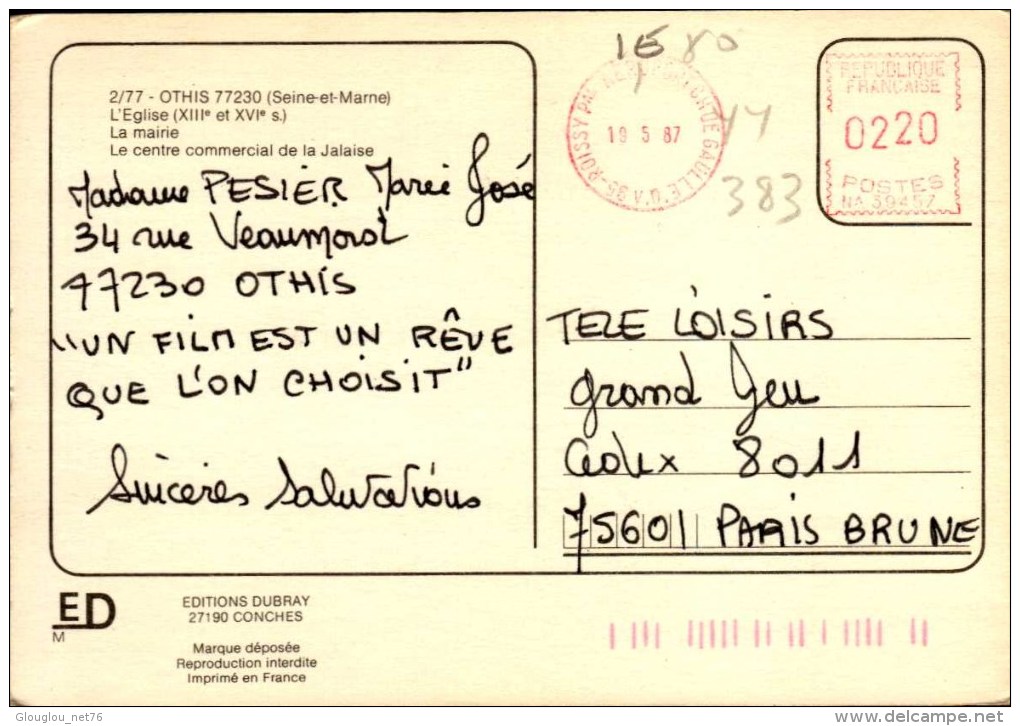 2/77 - OTHIS 77230 (Seine-et-Marne)
L'Eglise (XIIIe et XVIe s.)
La mairie
Le centre commercial de la Jalaise
Madame PESIER Marie José
34 rue Veaumorot
77230 OTHIS
"UN FILM EST UN RÊVE
QUE L'ON CHOISIT"
Sincères Salutations
1E 80
44
383
ROISSY PAL AEROPORT CH DE GAULLE V.D.O. 95
19 5 87
REPUBLIQUE
FRANCAISE
0220
POSTES
NA 59457
TELE LOISIRS
Grand Jeu
Cedex 8011
75601 PARIS BRUNE
ED
M
EDITIONS DUBRAY
27190 CONCHES
Marque déposée
Reproduction interdite
Imprimé en France
Glouglou_net76
delcampe.net